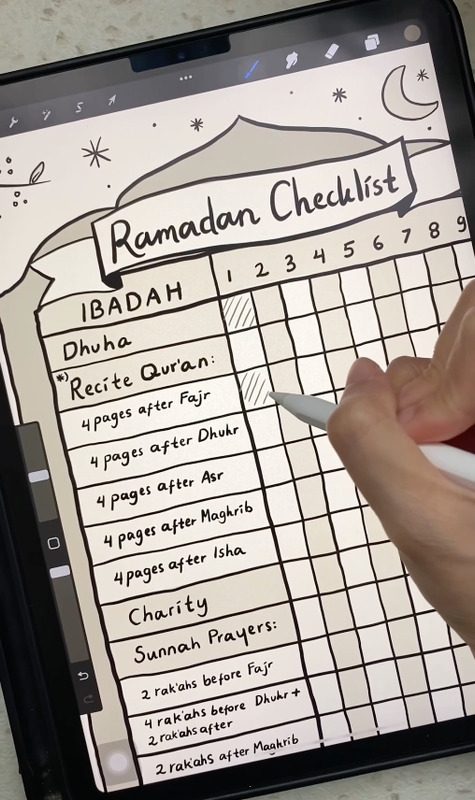 Ramadan Checklist
IBADAH 1 2 3 4 5 6 7 8 9
Dhuha
*) Recite Qur'an:
4 pages after Fajr
4 pages after Dhuhr
4 pages after Asr
4 pages after Maghrib
4 pages after Isha
Charity
Sunnah Prayers:
2 rak'ahs before Fajr
4 rak'ahs before Dhuhr +
2 rak'ahs after
2 rak'ahs after Maghrib